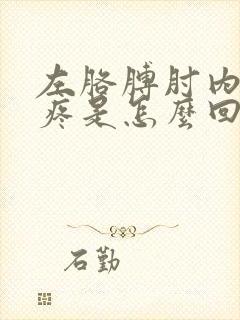 左胳膊肘内
疼是怎麼回
石勤